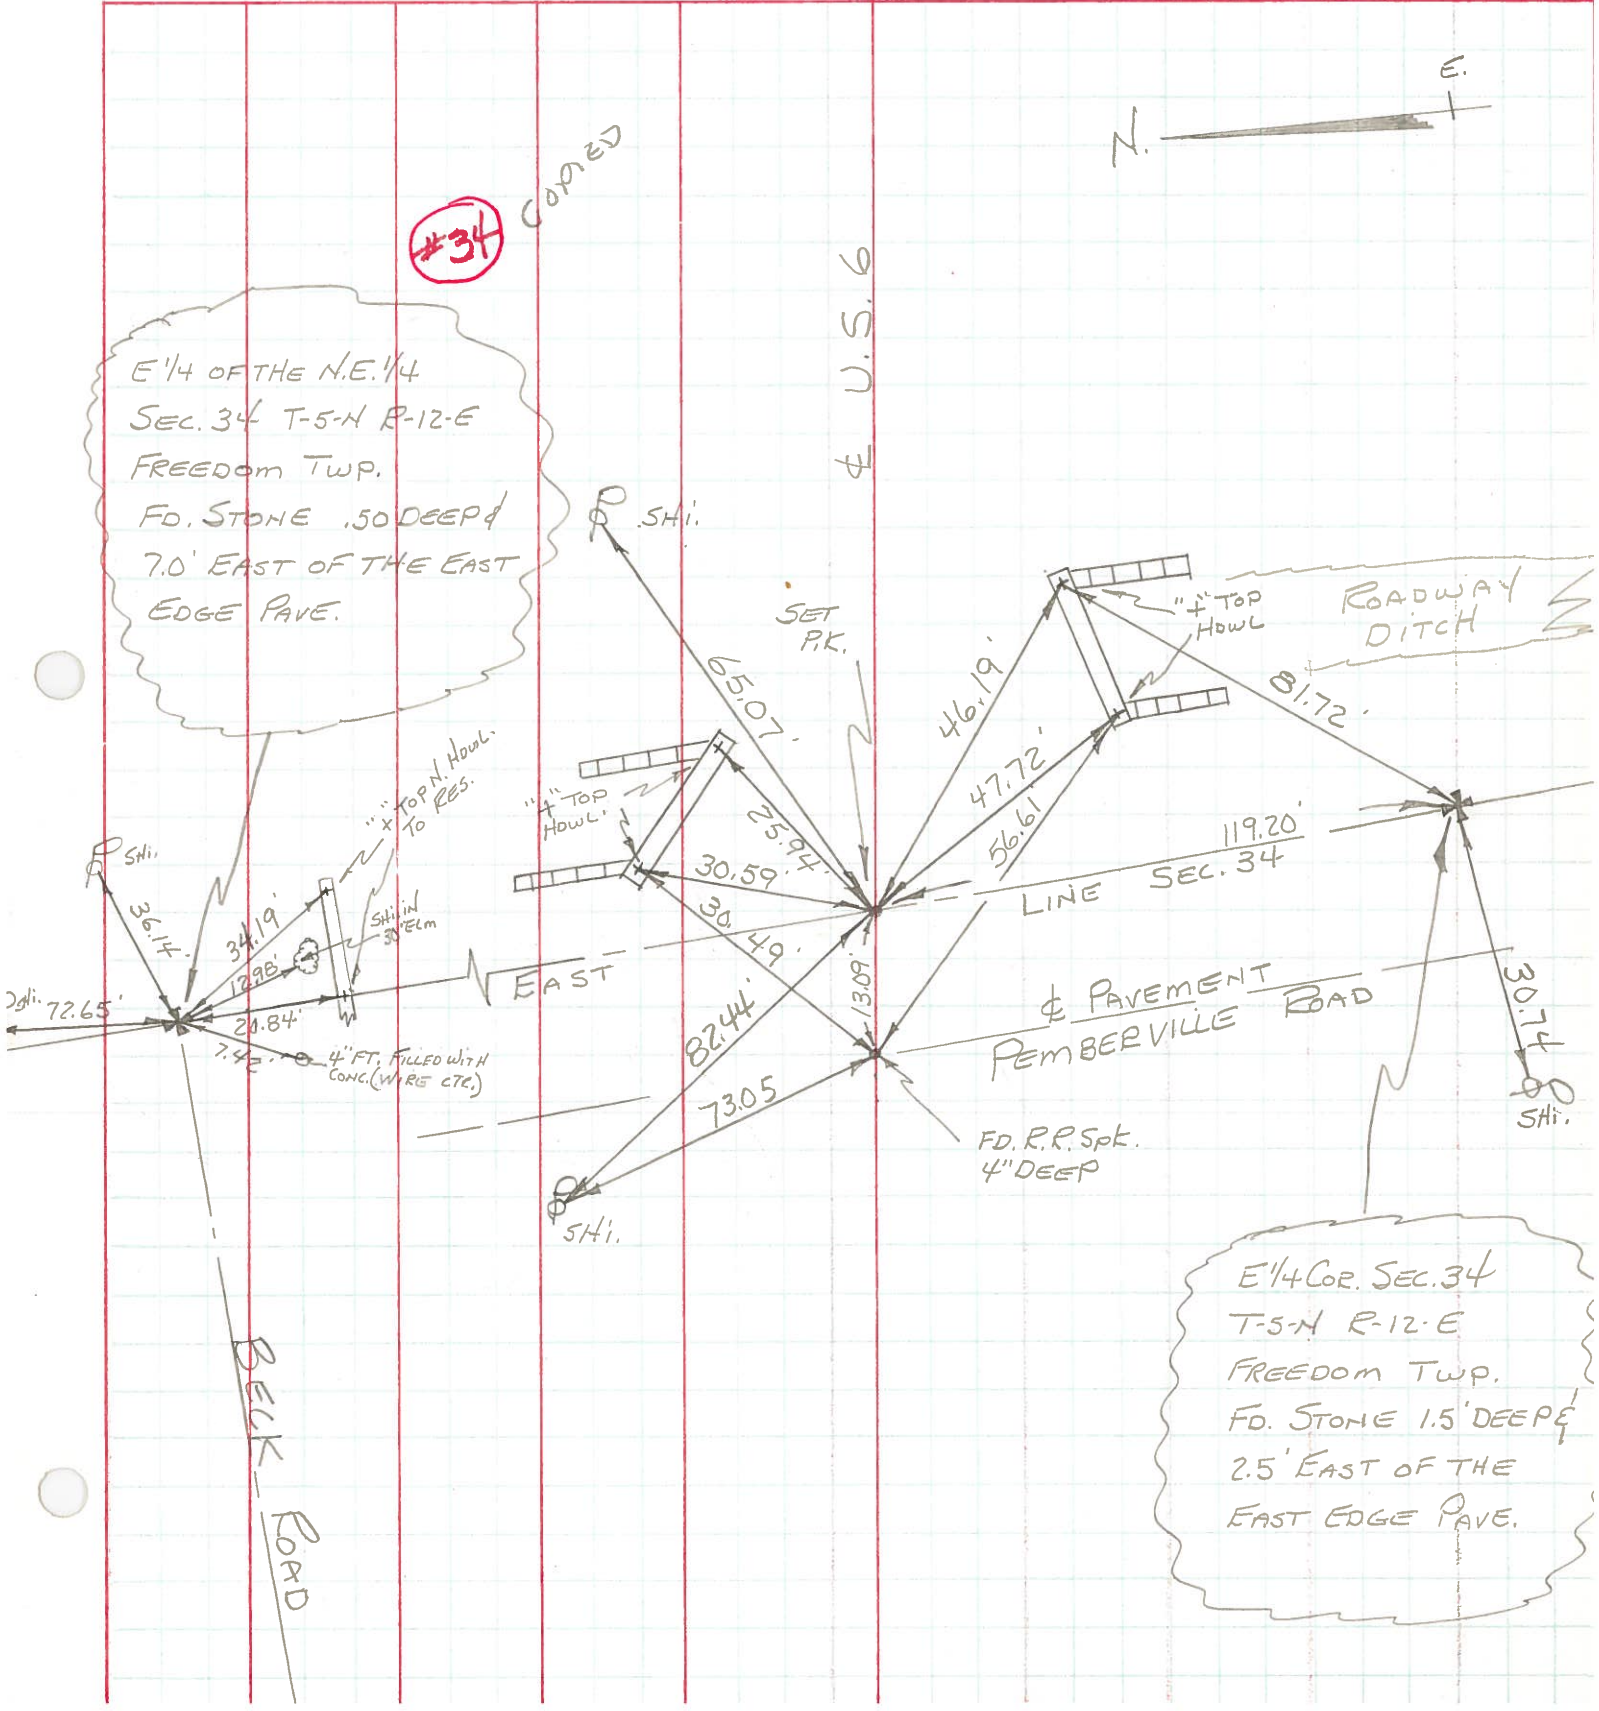 E.
N.
COPIED
#34
E 1/4 OF THE N.E. 1/4
SEC. 34 T-5-N R-12-E
FREEDOM TWP.
FD. STONE .50 DEEP &
7.0' EAST OF THE EAST
EDGE PAVE.
℄ U.S. 6
SHI.
SET
P.K.
"+" TOP
HDWL
ROADWAY
DITCH
65.07'
46.19'
81.72'
47.72'
56.61'
25.94'
30.59'
30.49'
"+" TOP
HDWL.
"x" TOP N. HDWL.
TO RES.
SHI.
36.14'
34.19'
12.98'
SHI. IN
30" ELM
72.65'
20.84'
7.42'
4" FT. FILLED WITH
CONC. (WIRE CTR.)
EAST
LINE
119.20'
SEC. 34
13.09'
82.44'
73.05
℄ PAVEMENT
PEMBERVILLE ROAD
30.74
SHI.
FD. R.R. SPK.
4" DEEP
SHI.
E 1/4 COR. SEC. 34
T-5-N R-12-E
FREEDOM TWP.
FD. STONE 1.5' DEEP &
2.5' EAST OF THE
EAST EDGE PAVE.
BECK ROAD